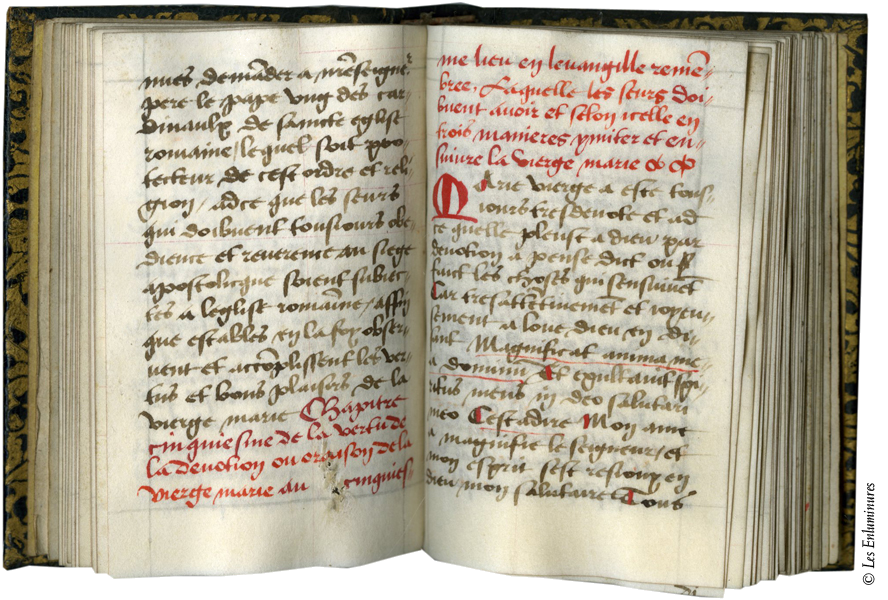 nues demãder a nr̃eseigner
pere le pape vng des car-
dinaulx de saincte eglise
romaine / lequel soit pro-
tecteur de cest ordre et reli-
gion / adce que les seurs
qui doibuent tousiours obe-
dience et reuerence au siege
apostolicque soient subiec-
tes a leglise romaine / affin
que estables en la foy obser-
uent et accõplissent les ver-
tus et bons plaisirs de la
vierge marie Chapitre
cinquiesme de la vertu de
la deuotion ou oraison de la
vierge marie au cinquies-
me lieu en leuangille remẽ-
bree. Laquelle les seurs doi-
buent auoir et selon icelle en
trois manieres ymiter et en-
suiure la vierge marie
Marie vierge a este tous-
iours tresdeuote et ad
ce quelle pleust a dieu par
deuotion a pense dict ou
faict les choses qui sensuiuẽt
Car tresattẽtiuemẽt et ioyeu-
sement a loue dieu en di-
sant Magnificat anima me-
a dominũ Et exultauit spi-
ritus meus in deo salutari
meo Cest adire Mon ame
a magnifie le seigneur / et
mon esprit sest resiouy en
dieu mon salutaire Tous
© Les Enluminures